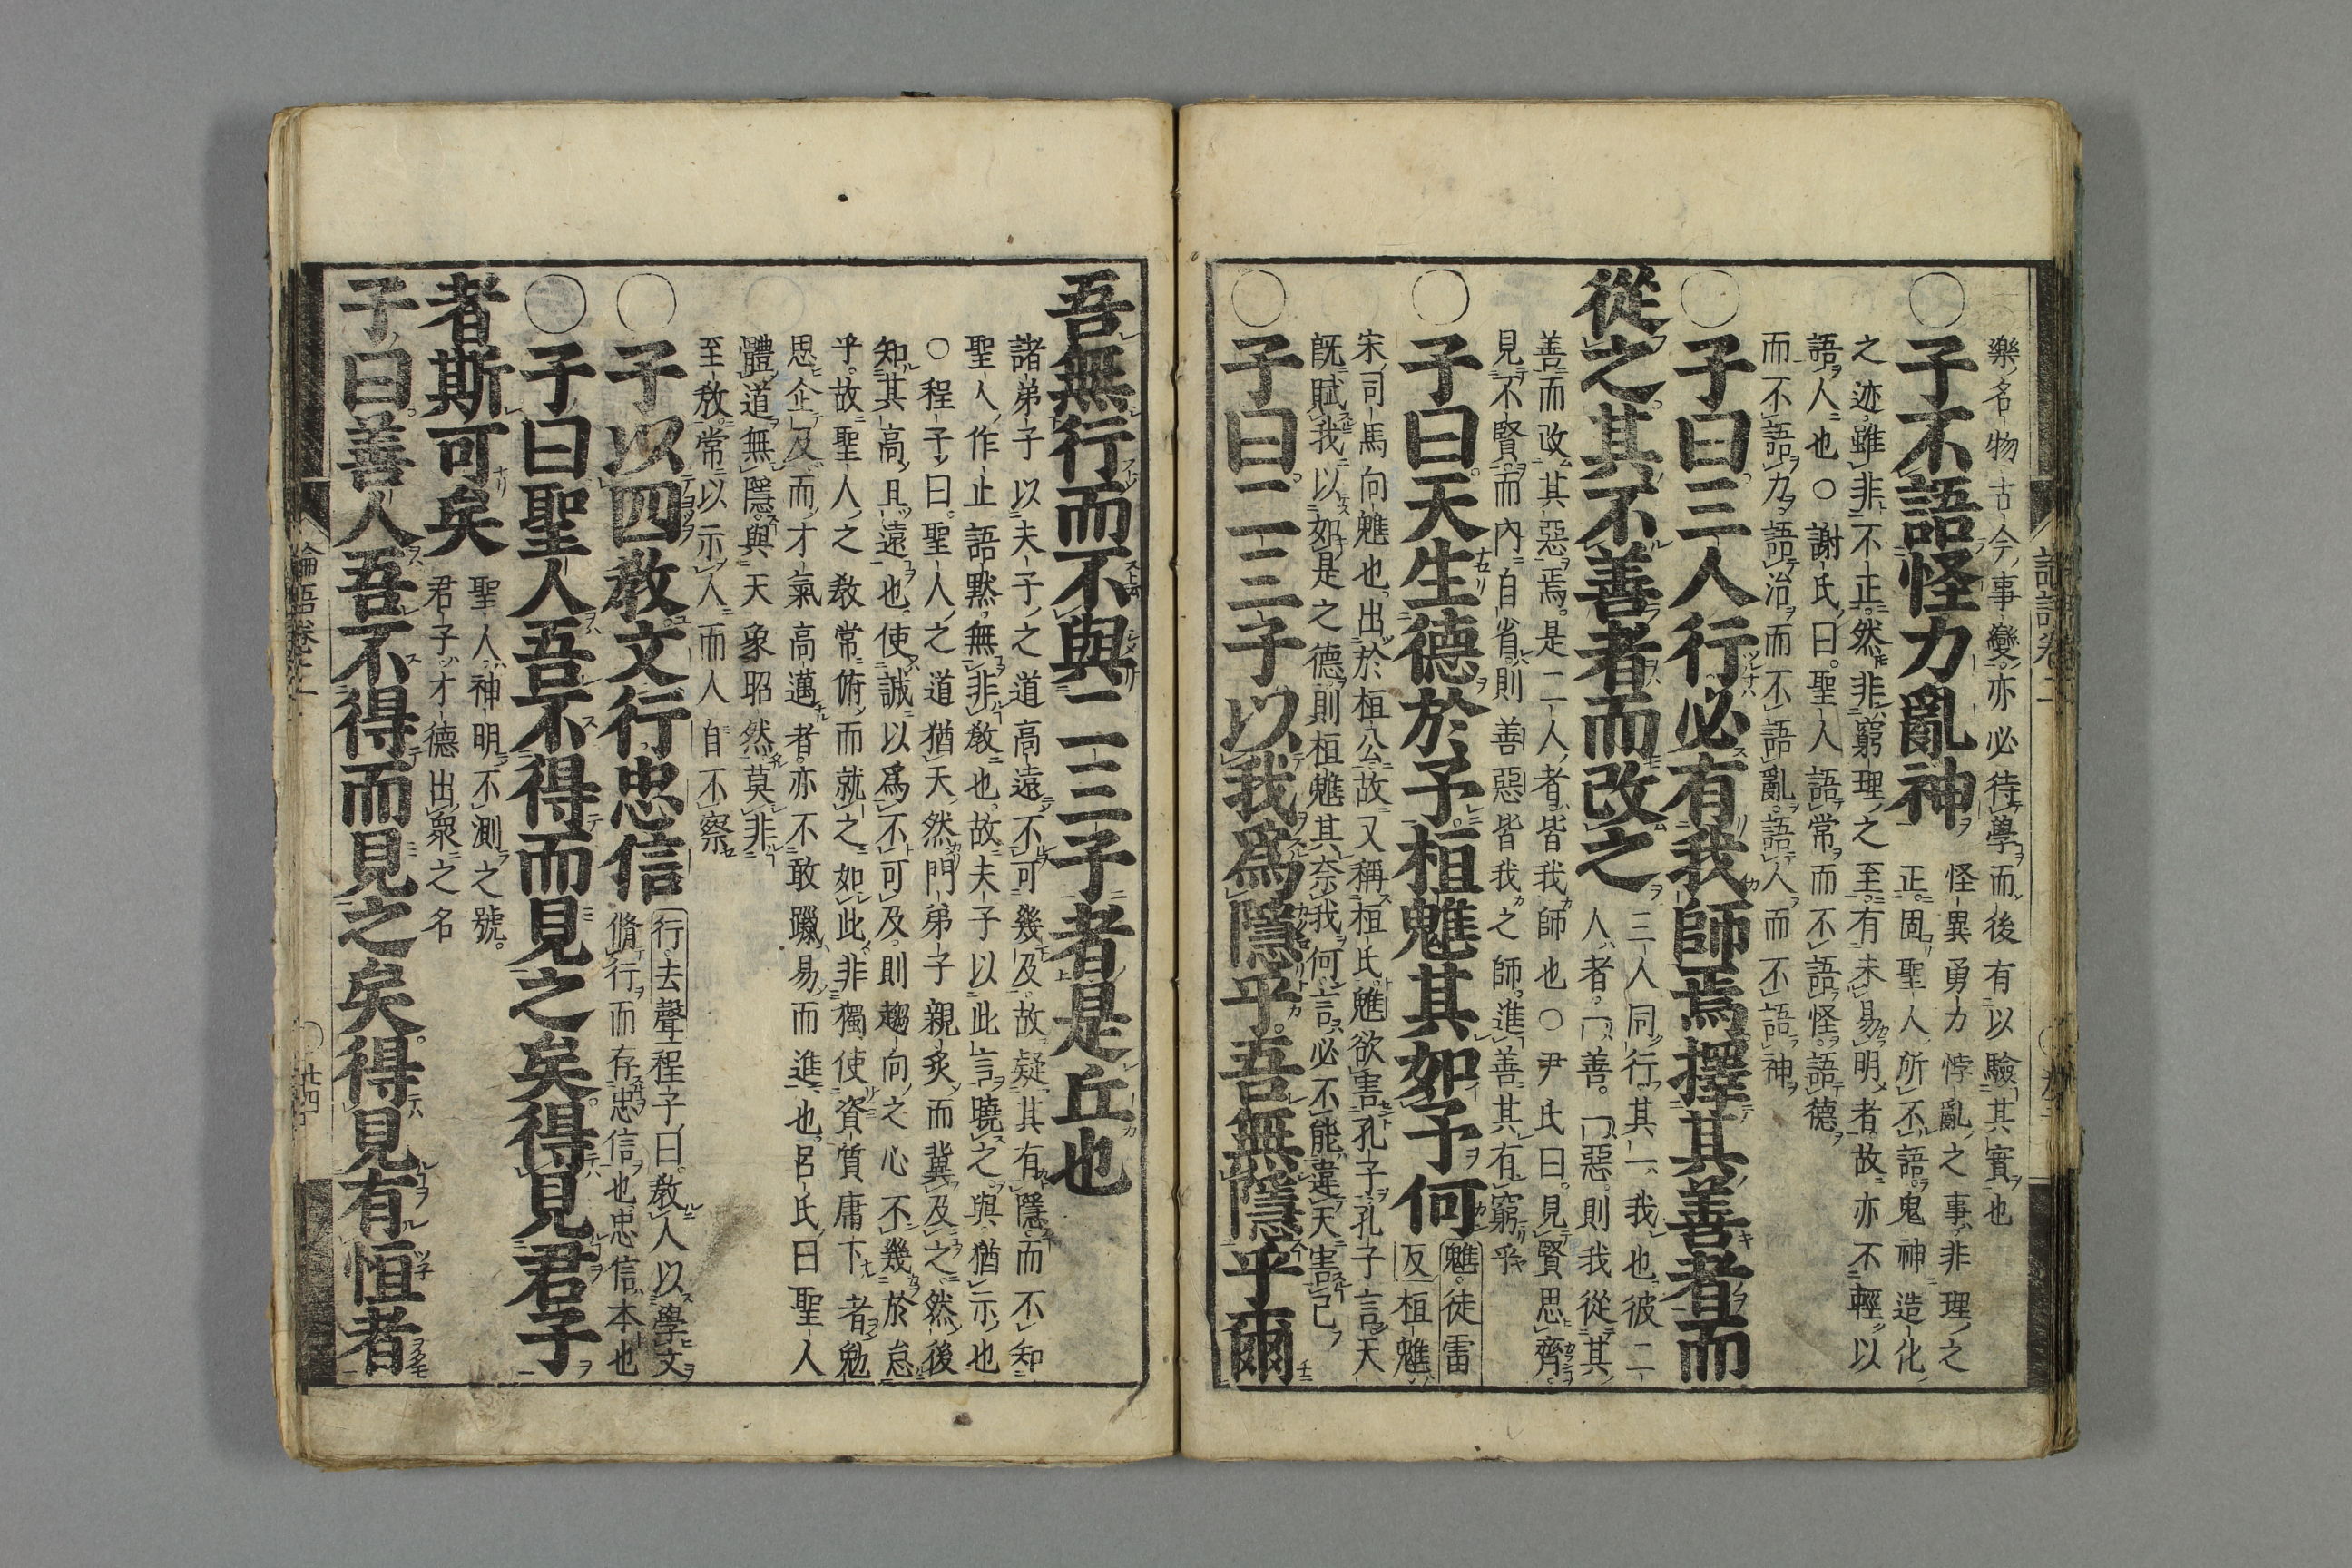 樂名物古今事變亦必待學而後有以驗其實也
○子不語怪力亂神
怪異勇力悖亂之事非理之
正固聖人所不語鬼神造化
之迹雖非不正然非窮理之至有未易明者故亦不輕以
語人也○謝氏曰聖人語常而不語怪語德
而不語力語治而不語亂語人而不語神
○子曰三人行必有我師焉擇其善者而
從之其不善者而改之
三人同行其一我也彼二
人者一善一惡則我從其
善而改其惡焉是二人者皆我師也○尹氏曰見賢思齊
見不賢而內自省則善惡皆我之師進善其有窮乎
○子曰天生德於予桓魋其如予何
魋徒雷
反桓魋
宋司馬向魋也出於桓公故又稱桓氏魋欲害孔子孔子言天
既賦我以如是之德則桓魋其奈我何言必不能違天害己
○子曰二三子以我爲隱乎吾無隱乎爾
吾無行而不與二三子者是丘也
諸弟子以夫子之道高遠不可幾及故疑其有隱而不知
聖人作止語默無非敎也故夫子以此言曉之與猶示也
○程子曰聖人之道猶天然門弟子親炙而冀及之然後
知其高且遠也使誠以爲不可及則趨向之心不幾於怠
乎故聖人之敎常俯而就之如此非獨使資質庸下者勉
思企及而才氣高邁者亦不敢躐易而進也呂氏曰聖人
體道無隱與天象昭然莫非
至敎常以示人而人自不察
○子以四敎文行忠信
行去聲程子曰敎人以學文
脩行而存忠信也忠信本也
○子曰聖人吾不得而見之矣得見君子
者斯可矣
聖人神明不測之號
君子才德出衆之名
子曰善人吾不得而見之矣得見有恒者
論語卷之二
○
廿四